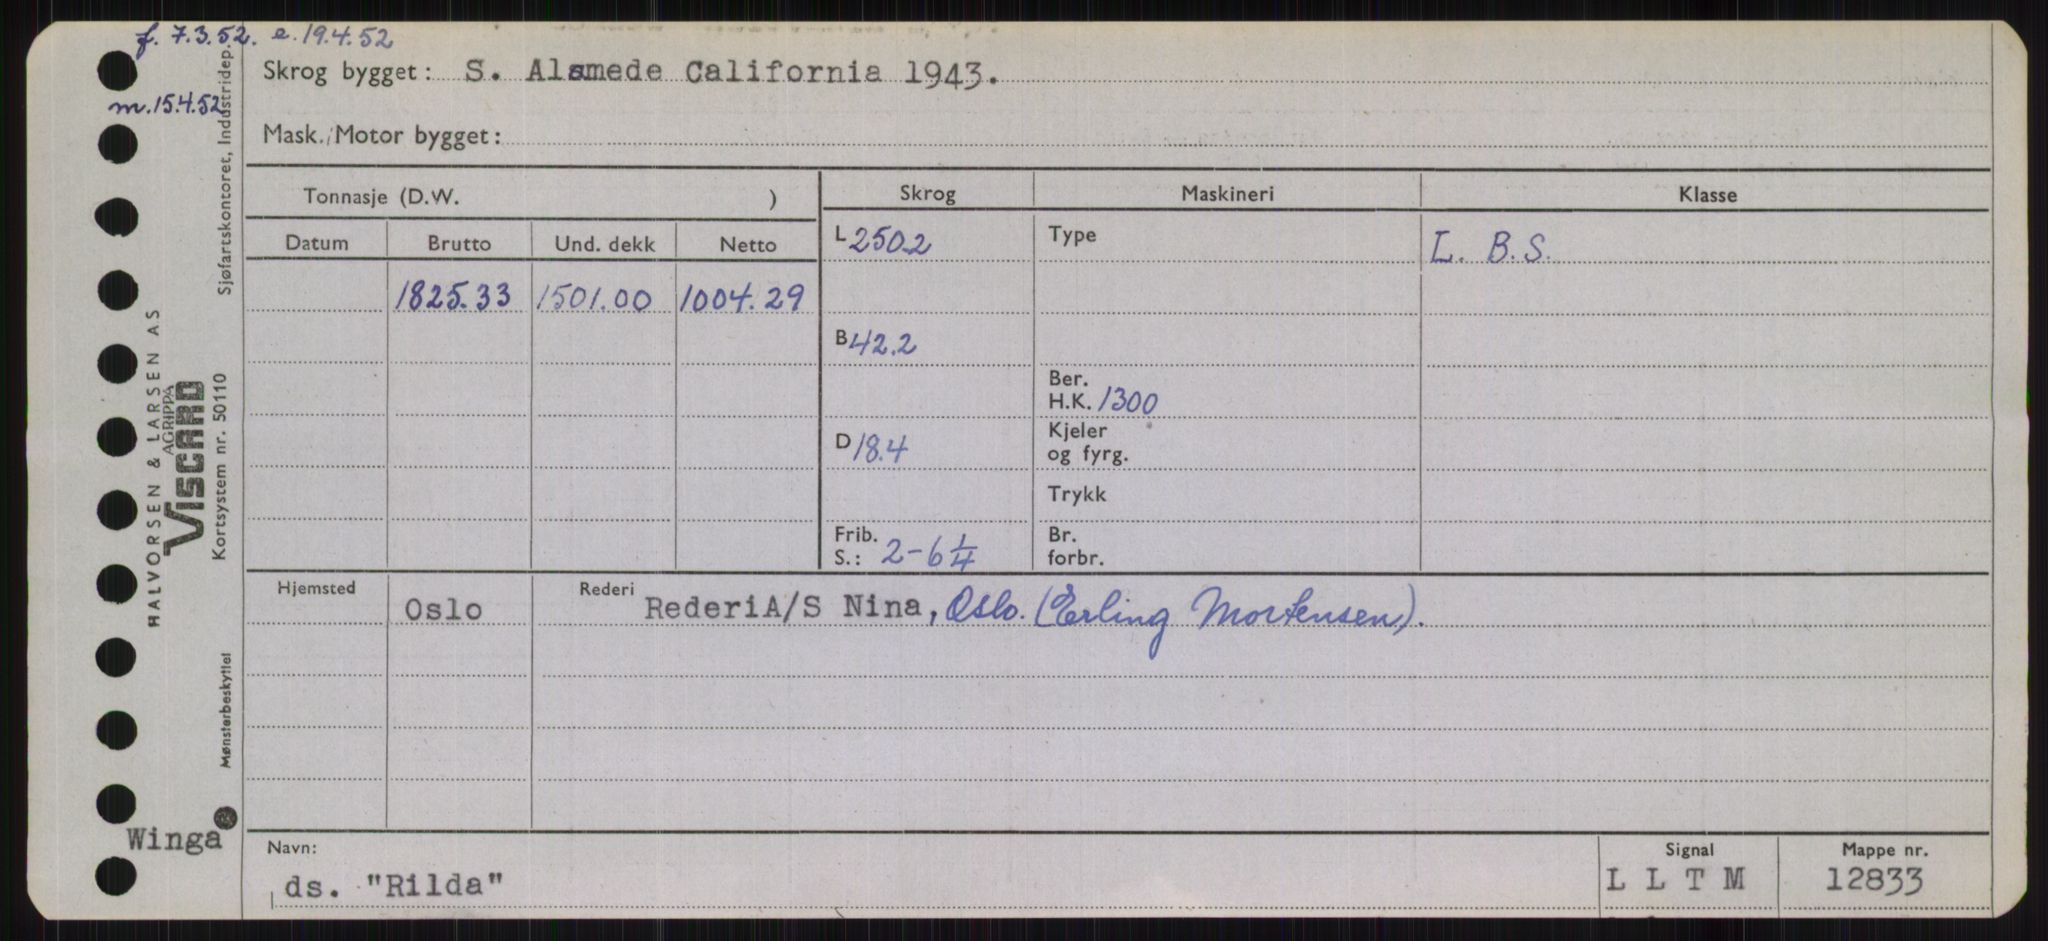 f. 7.3.52. e. 19.4.52
m. 15.4.52
Sjøfartskontoret, Industridep.
HALVORSEN & LARSEN AS
AGRIPPA
VISCARD
Kortsystem nr. 50110
Mønsterbeskyttet
Winga
Skrog bygget: S. Alamede California 1943.
Mask./Motor bygget:
Tonnasje (D.W. )
Skrog Maskineri Klasse
Datum Brutto Und. dekk Netto
L 250.2 Type L. B.S.
1825.33 1501.00 1004.29
B 42.2
Ber.
H.K. 1300
D 18.4 Kjeler
og fyrg.
Trykk
Frib. Br.
S.: 2-6 1/4 forbr.
Hjemsted Oslo Rederi RederiA/S Nina, Oslo. (Erling Mortensen).
Navn: Signal Mappe nr.
ds. "Rilda" L L T M 12833